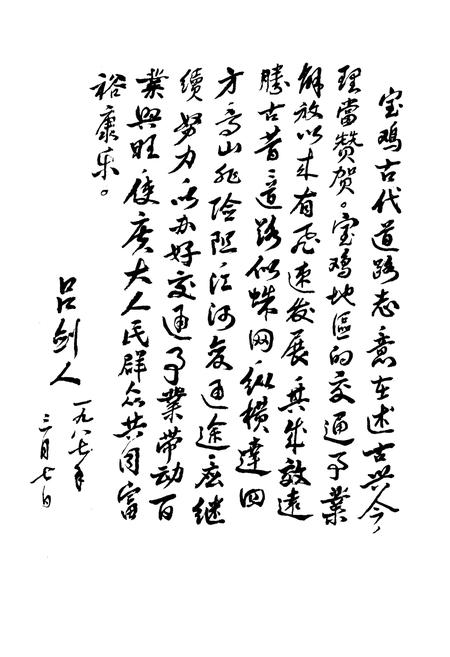 宝鸡古代道路志意在述古兴今，
理当赞贺。宝鸡地區的交通事業
解放以来有飞速发展，其成效远
勝古昔，道路似蛛网，纵横達四
方，高山非险阻，江河变通途，应继
续努力，以办好交通事業带动百
業興旺，使广大人民群众共同富
裕康乐。
吕剑人
一九八七年
三月七日